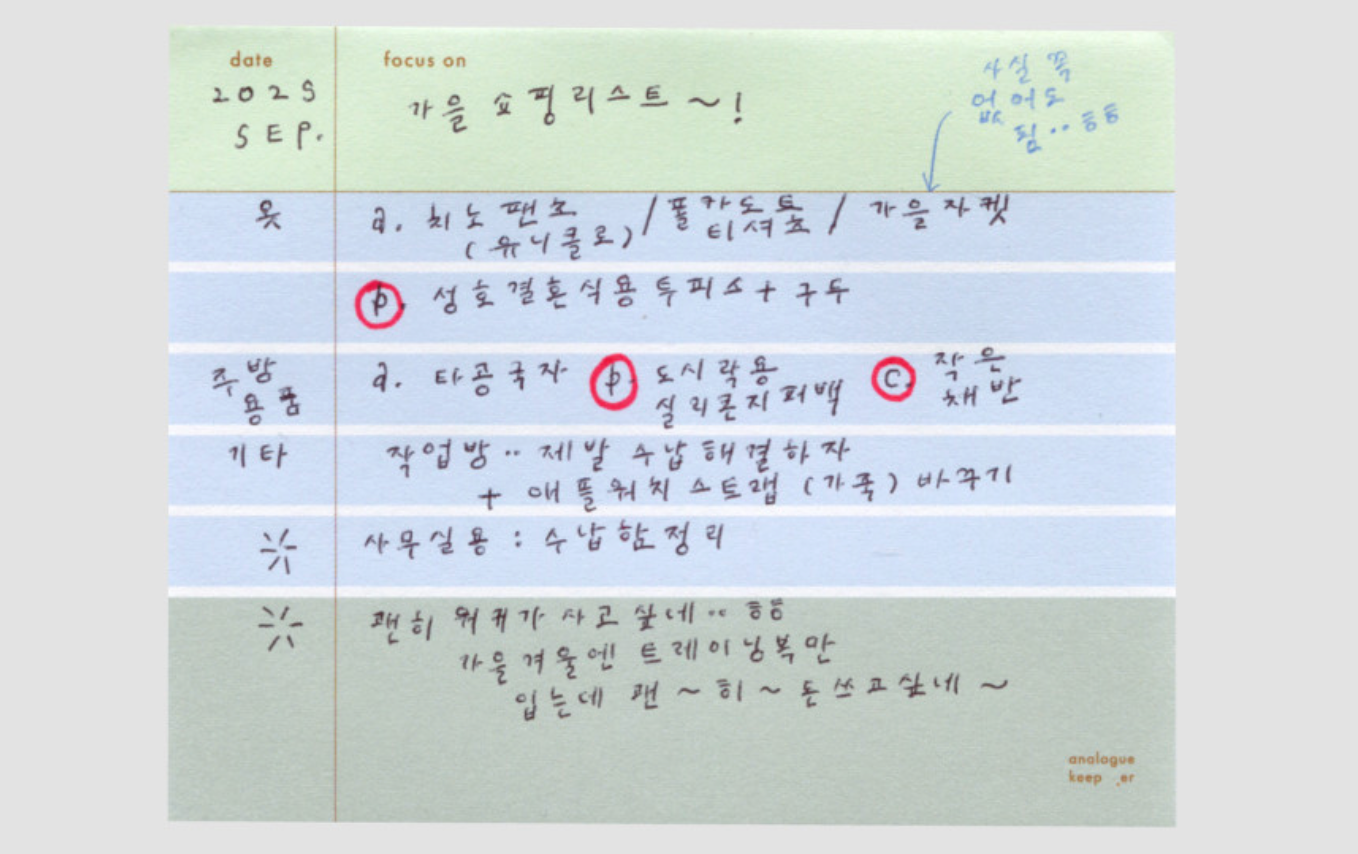 date
focus on
2025
SEP.
가을 쇼핑리스트 ~!
사실 꼭
없어도
됨.. ㅎㅎ
옷
a. 치노팬츠
(유니클로)
/ 폴카도트
티셔츠
/ 가을자켓
b. 성호결혼식용 투피스 + 구두
주방
용품
a. 타공국자
b. 도시락용
실리콘지퍼백
c. 작은
채반
기타
작업방.. 제발 수납해결하자
+ 애플워치 스트랩 (가죽) 바꾸기
사무실용 : 수납함정리
괜히 워커가 사고싶네.. ㅎㅎ
가을겨울엔 트레이닝복만
입는데 괜~히~ 돈쓰고싶네~
analogue
keep_er